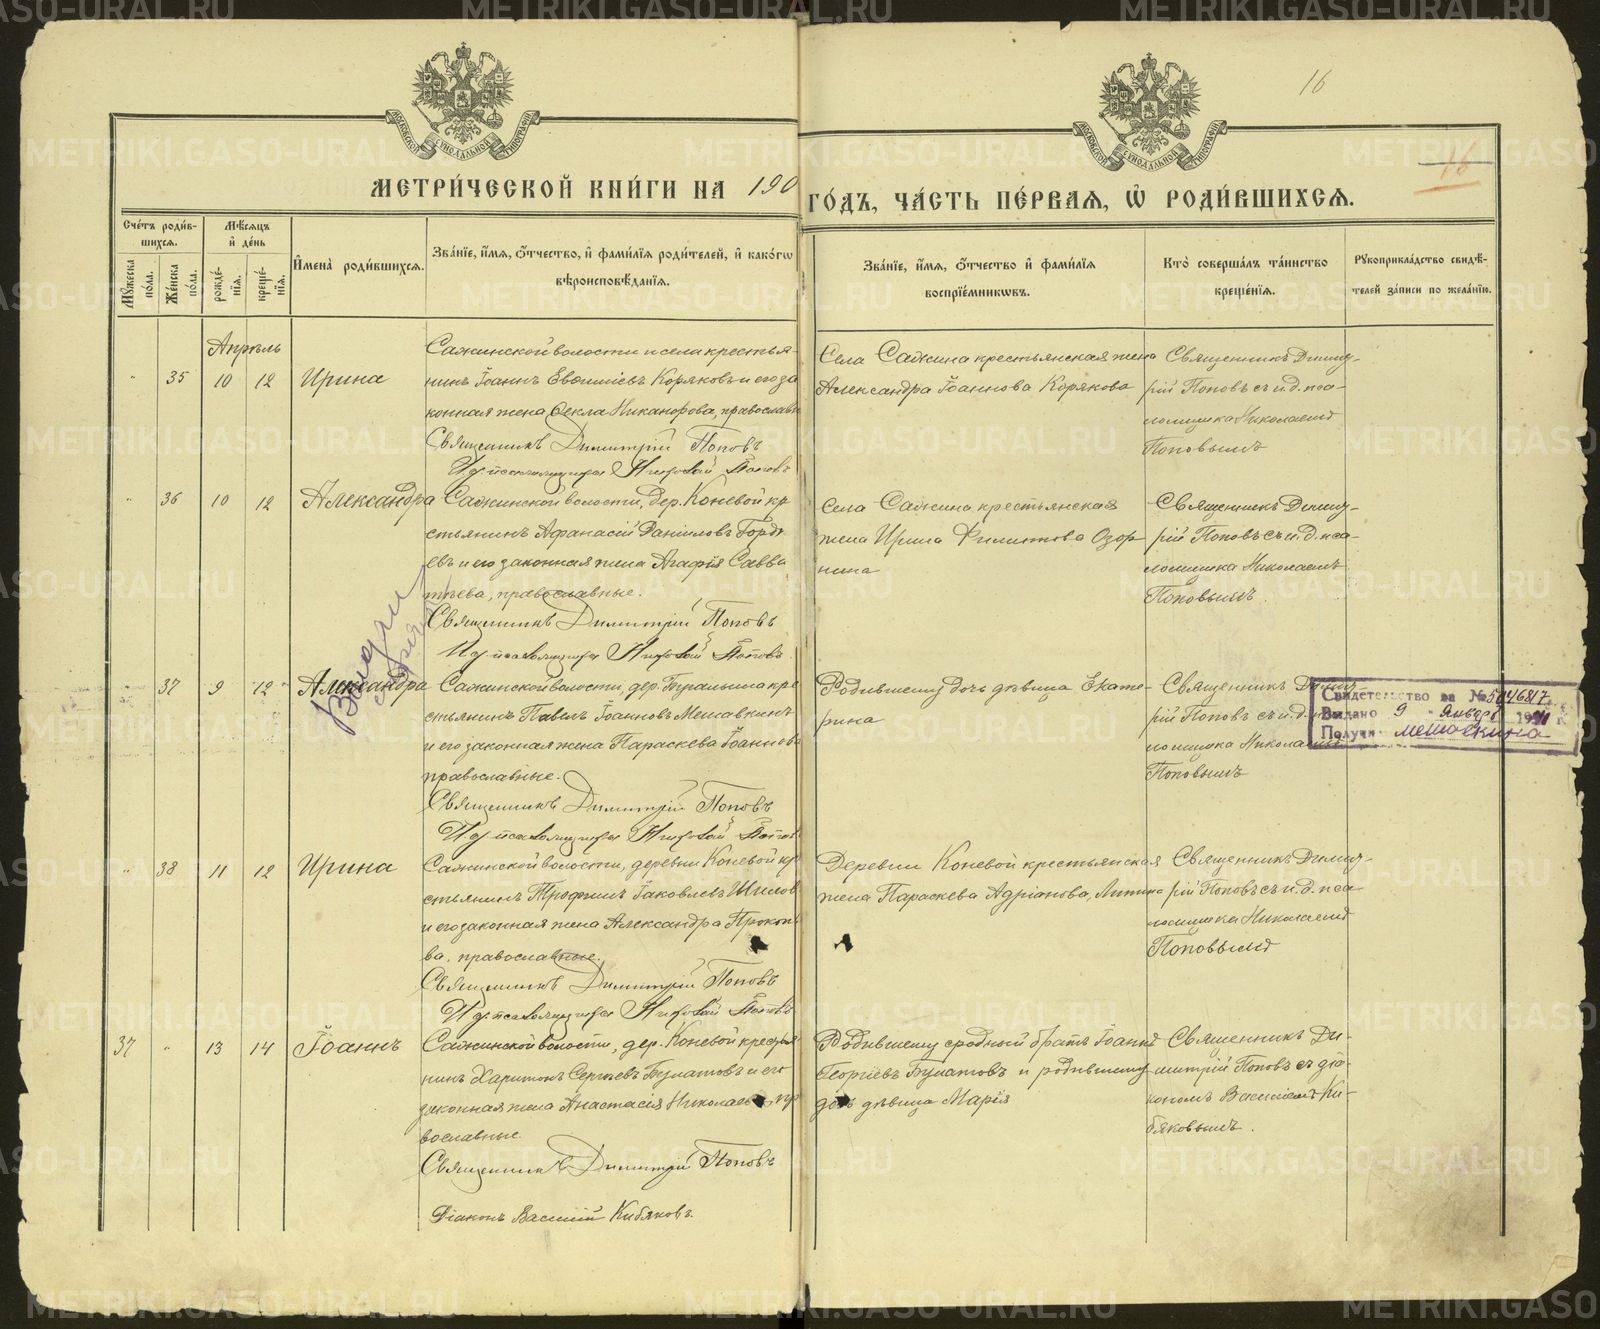 16
16
МЕТРИ́ЧЕСКОЙ КНИ́ГИ НА 190 ГО́ДЪ, ЧА́СТЬ ПЕ́РВАЯ, Ѽ РОДИ́ВШИХСЯ.
Сче́тъ роди́вшихся.
Мꙋ́жеска по́ла.
Же́нска по́ла.
Мѣ́сяцъ и҆ де́нь
рожде́нїя.
креще́нїя.
И҆мена̀ роди́вшихся.
Зва́нїе, и҆́мя, ѻ҆́тчество, и҆ фами́лїя роди́телей, и҆ како́гѡ вѣроисповѣ́данїя.
Зва́нїе, и҆́мя, ѻ҆́тчество и҆ фами́лїя воспрїе́мникѡвъ.
Кто̀ соверша́лъ та́инство креще́нїя.
Рꙋкоприкла́дство свидѣ́телей за́писи по жела́нїю.
Апрѣль
35 10 12 Ирина
Сажинской волости и села крестья-
нинъ Іоаннъ Евѳиміевъ Коряковъ и его за
конная жена Ѳекла Никанорова, православн
Священникъ Димитрій Поповъ
И.д. псаломщика Николай Поповъ
Села Сажина крестьянская жена
Александра Іоаннова Корякова
Священникъ Димит-
рій Поповъ съ и.д. пса-
ломщика Николаемъ
Поповымъ
36 10 12 Александра
Сажинской волости, дер. Коневой кр
стьянинъ Аѳанасій Даніиловъ Горд
евъ и его законная жена Агафія Савва
тіева, православные.
Священникъ Димитрій Поповъ
И.д. псаломщика Николай Поповъ
Села Сажина крестьянская
жена Ирина Филиппова Озор
нина
Священникъ Димит-
рій Поповъ съ и.д. пса-
ломщика Николаемъ
Поповымъ.
37 9 12 Александра
Сажинской волости, дер. кре
стьянинъ Павелъ Іоанновъ Мешавкинъ
и его законная жена Параскева Іоаннова
православные.
Священникъ Димитрій Поповъ
И.д. псаломщика Николай Поповъ
Родившему дочь дѣвица Екате-
рина
Священникъ Димит-
рій Поповъ съ и.д. пса
ломщика Николаемъ
Поповымъ
Свидетельство за № 5046817
Выдано 9 Января 19 г.
Получ Мешавкина
38 11 12 Ирина
Сажинской волости, деревни Коневой кр
стьянинъ Трофимъ Іаковлевъ Шилов
и его законная жена Александра Прокоп
ва, православные.
Священникъ Димитрій Поповъ
И.д. псаломщика Николай Поповъ
Деревни Коневой крестьянская
жена Параскева Адріанова,
Священникъ Димит-
рій Поповъ съ и.д. пса
ломщика Николаемъ
Поповымъ
37 13 14 Іоаннъ
Сажинской волости, дер. Коневой крестья
нинъ Харитонъ Сергѣевъ Булатовъ и его
законная жена Анастасія Николаев пр
вославные.
Священникъ Димитрій Поповъ
Діаконъ Василій Кибяковъ.
Родившему сродный братъ Іоаннъ
Георгіевъ Булатовъ и родившему
дочь дѣвица Марія
Священникъ Ди-
митрій Поповъ съ діа-
кономъ Василіемъ Ки-
бяковымъ.
METRIKI.GASO-URAL.RU